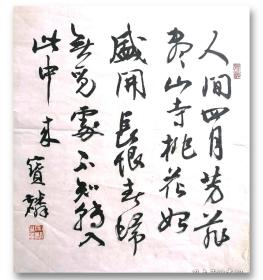 人间四月芳菲
尽山寺桃花始
盛开长恨春归
无觅处不知转入
此中来 宝麟